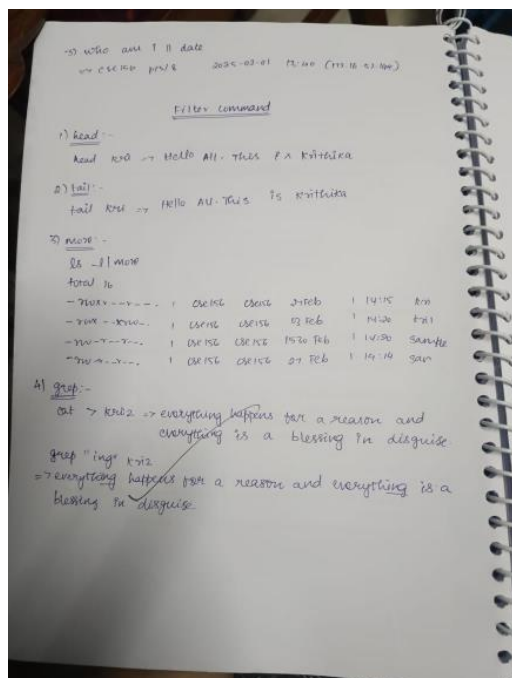 5) who am I || date
=> cse156 pts/8 2025-03-01 12:40
Filter command
1) head:-
head kri => Hello All. This is Krithika
2) tail:-
tail kri => Hello All. This is Krithika
3) more:-
ls -l | more
total 16
1 cse156 cse156 27 Feb 1 14:15 kri
1 cse156 cse156 53 Feb 1 14:20
1 cse156 cse156 1530 Feb 1 14:50 sample
1 cse156 cse156 27 Feb 1 14:14 san
4) grep:-
cat > kri2 => everything happens for a reason and
everything is a blessing in disguise.
grep "ing" kri2
=> everything happens for a reason and everything is a
blessing in disguise.